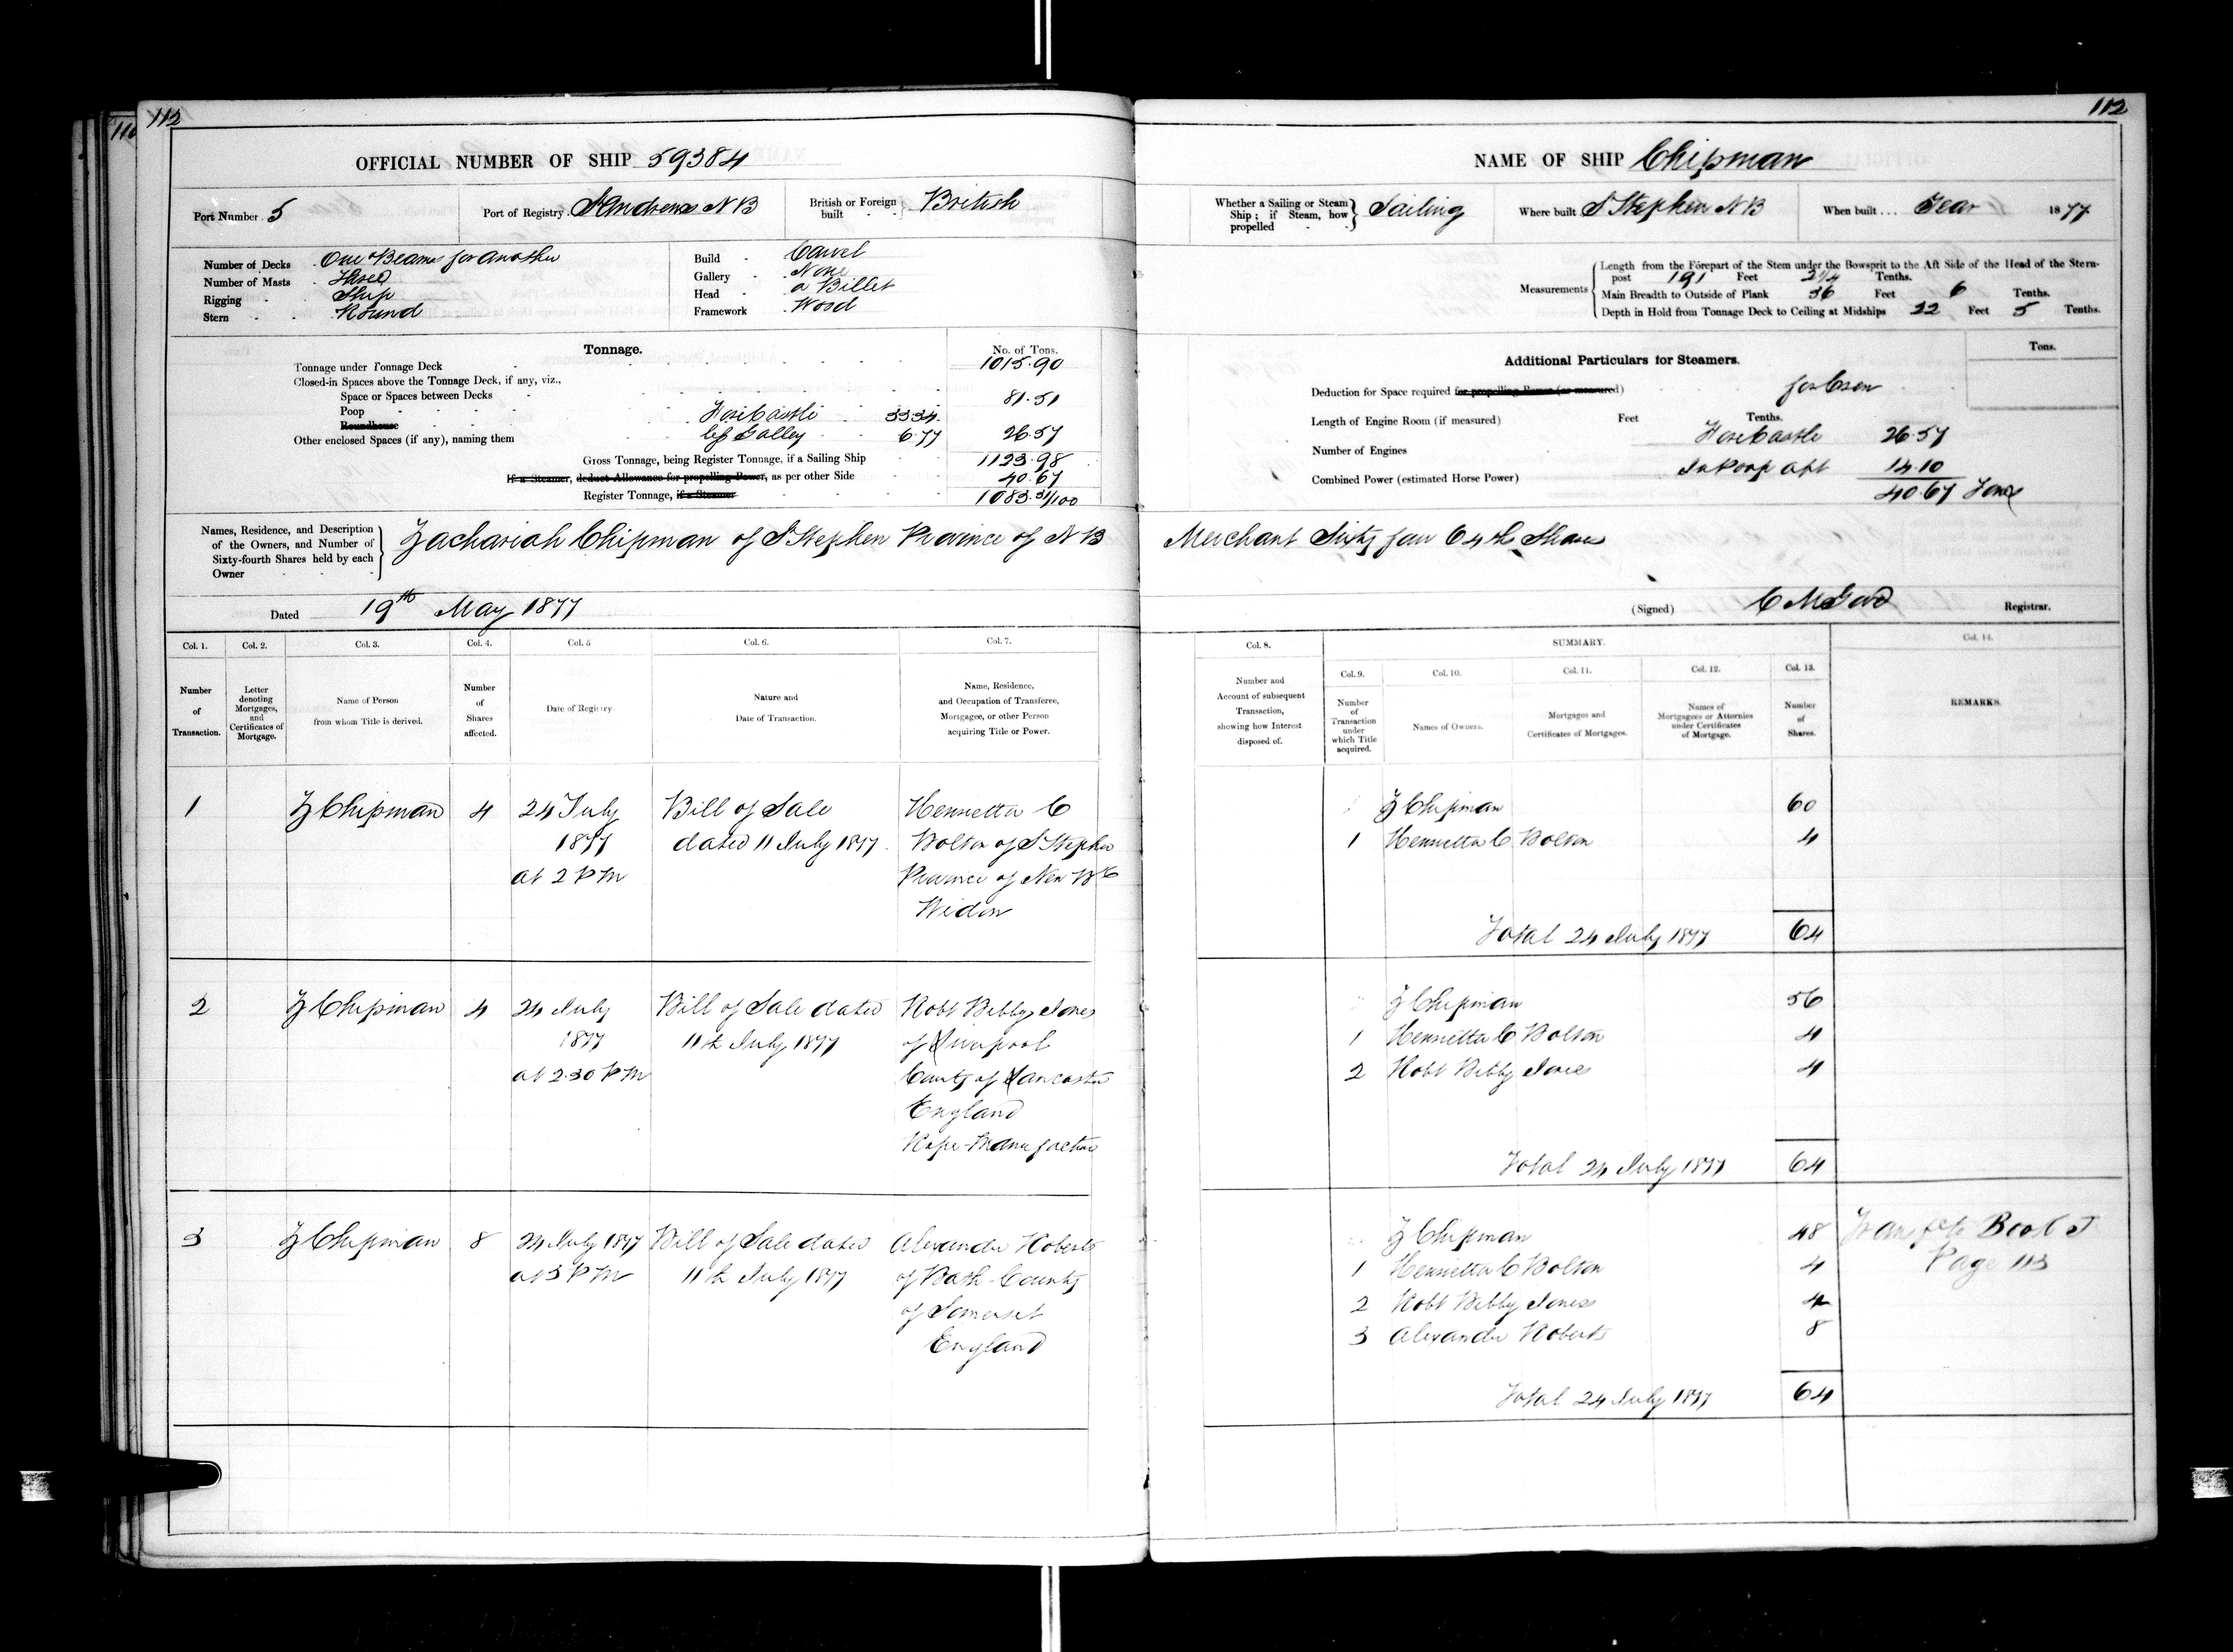 112
110
OFFICIAL NUMBER OF SHIP 59384
Port Number 5
Port of Registry St Andrews N B
British or Foreign built } British
Number of Decks One & Beams for another
Number of Masts Three
Rigging Ship
Stern Round
Build Carvel
Gallery None
Head a Billet
Framework Wood
Tonnage.
No. of Tons.
Tonnage under Tonnage Deck 1015.90
Closed-in Spaces above the Tonnage Deck, if any, viz.,
Space or Spaces between Decks
Poop 81.51
Roundhouse Forecastle 33.34
Other enclosed Spaces (if any), naming them Galley 6.77 26.57
Gross Tonnage, being Register Tonnage, if a Sailing Ship 1123.98
If a Steamer, deduct Allowance for propelling Power, as per other Side 40.67
Register Tonnage, if a Steamer 1083.31/100
Names, Residence, and Description of the Owners, and Number of Sixty-fourth Shares held by each Owner } Zachariah Chipman of St Stephen Province of N B
Dated 19th May 1877
Col. 1. Col. 2. Col. 3. Col. 4. Col. 5 Col. 6. Col. 7.
Number of Transaction.
Letter denoting Mortgages, and Certificates of Mortgage.
Name of Person from whom Title is derived.
Number of Shares affected.
Date of Registry
Nature and Date of Transaction.
Name, Residence, and Occupation of Transferee, Mortgagee, or other Person acquiring Title or Power.
1 Z Chipman 4 24 July Bill of Sale Henrietta C
1877 dated 11 July 1877 Bolton of St Stephen
at 2 P M Province of New Bk
Widow
2 Z Chipman 4 24 July Bill of Sale dated Robt Bibby Jones
1877 11th July 1877 of Liverpool
at 2.30 P M County of Lancaster
England
Rope-Manufacturer
3 Z Chipman 8 24 July 1877 Bill of Sale dated Alexander Roberts
at 3 P M 11th July 1877 of Bath County
of Somerset
England
112
NAME OF SHIP Chipman
Whether a Sailing or Steam Ship; if Steam, how propelled } Sailing
Where built St Stephen N B
When built... Year 1877
Measurements
Length from the Forepart of the Stem under the Bowsprit to the Aft Side of the Head of the Stern-
post 191 Feet 2 1/4 Tenths.
Main Breadth to Outside of Plank 36 Feet 6 Tenths.
Depth in Hold from Tonnage Deck to Ceiling at Midships 22 Feet 5 Tenths.
Additional Particulars for Steamers.
Tons.
Deduction for Space required for propelling Power (as measured) for Crew
Length of Engine Room (if measured) Feet Tenths.
Number of Engines Forecastle 26.57
Combined Power (estimated Horse Power) In Poop aft 14.10
40.67 Tons
Merchant Sixty four 64th Shares
(Signed) Registrar.
Col. 8.
Number and Account of subsequent Transaction, showing how Interest disposed of.
SUMMARY.
Col. 9. Col. 10. Col. 11. Col. 12. Col. 13.
Number of Transaction under which Title acquired.
Names of Owners.
Mortgages and Certificates of Mortgages.
Names of Mortgagees or Attornies under Certificates of Mortgage.
Number of Shares.
Col. 14.
REMARKS.
Z Chipman 60
1 Henrietta C Bolton 4
Total 24 July 1877 64
Z Chipman 56
1 Henrietta C Bolton 4
2 Robt Bibby Jones 4
Total 24 July 1877 64
Z Chipman 48
1 Henrietta C Bolton 4
2 Robt Bibby Jones 4
3 Alexander Roberts 8
Total 24 July 1877 64
Book J
Page 113